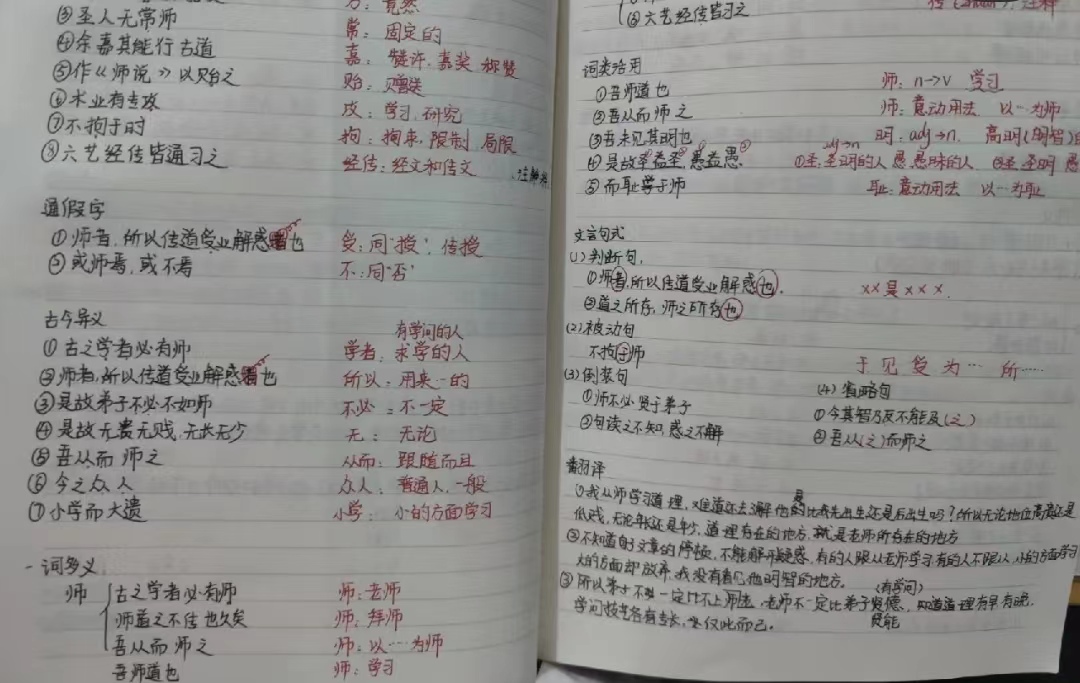 方：竟然
③圣人无常师 常：固定的
④余嘉其能行古道 嘉：赞许，嘉奖 称赞
⑤作《师说》以贻之 贻：赠送
⑥术业有专攻 攻：学习，研究
⑦不拘于时 拘：拘束，限制 局限
⑧六艺经传皆通习之 经传：经文和传文
通假字
①师者，所以传道受业解惑也 受：同“授”，传授
②或师焉，或不焉 不：同“否”
古今异义
有学问的人
①古之学者必有师 学者：求学的人
②师者，所以传道受业解惑也 所以：用来…的
③是故弟子不必不如师 不必：不一定
④是故无贵无贱，无长无少 无：无论
⑤吾从而师之 从而：跟随而且
⑥今之众人 众人：普通人，一般
⑦小学而大遗 小学：小的方面学习
一词多义
师 古之学者必有师 师：老师
师道之不传也久矣 师：拜师
吾从而师之 师：以……为师
吾师道也 师：学习
⑧六艺经传皆习之
词类活用
①吾师道也 师：n→v 学习
②吾从而师之 师：意动用法 以…为师
③吾未见其明也 明：adj→n. 高明(明智)
adj→n
④是故圣益圣，愚益愚。 ①圣：圣明的人 愚：愚昧的人 ②圣：圣明 愚
⑤而耻学于师 耻：意动用法 以…为耻
文言句式
(1)判断句，
①师者，所以传道受业解惑也. ××是×××.
②道之所存，师之所存也
(2)被动句
不拘于师 于 见 受 为… 所……
(3)倒装句 (4)省略句
①师不必贤于弟子 ①今其智乃反不能及(之)
②句读之不知，惑之不解 ②吾从(之)而师之
翻译
①我从师学习道理，难道还去了解他的是比我先出生还是后出生吗？所以无论地位高贵还是
低贱，无论年长还是年少，道理存在的地方，就是老师所存在的地方
②不知道的文章的停顿，不能解开疑惑，有的人跟从老师学习有的人不跟从，小的方面学习
大的方面却放弃，我没有看见他明智的地方。
(有学问)
③所以弟子不必一定比不上师法，老师不一定比弟子贤德，知道道理有早有晚，
贤能
学问技艺各有专长，坐仅此而已。